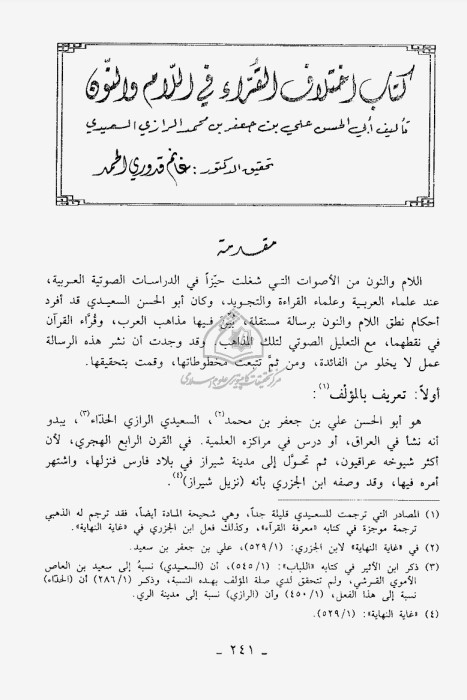 كتاب اختلاف القُرّاء في اللّام والنّون
تأليف أبي الحسن علي بن جعفر بن محمد الرازي السعيدي
تحقيق الدكتور: غانم قدوري الحمد
مقدمة
اللام والنون من الأصوات التي شغلت حيّزاً في الدراسات الصوتية العربية،
عند علماء العربية وعلماء القراءة والتجويد، وكان أبو الحسن السعيدي قد أفرد
أحكام نطق اللام والنون برسالة مستقلة، بُيّن فيها مذاهب العرب، وقُرَّاء القرآن
في نقطهما، مع التعليل الصوتي لتلك المذاهب وقد وجدت أن نشر هذه الرسالة
عمل لا يخلو من الفائدة، ومن ثمَّ تتبعت مخطوطاتها، وقمت بتحقيقها.
أولاً: تعريف بالمؤلف(١):
هو أبو الحسن علي بن جعفر بن محمد(٢)، السعيدي الرازي الحذّاء(٣)، يبدو
أنه نشأ في العراق، أو درس في مراكزه العلمية. في القرن الرابع الهجري، لأن
أكثر شيوخه عراقيون، ثم تحوَّل إلى مدينة شيراز في بلاد فارس فنزلها، واشتهر
أمره فيها، وقد وصفه ابن الجزري بأنه (نزيل شيراز)(٤).
(١) المصادر التي ترجمت للسعيدي قليلة جداً، وهي شحيحة المادة أيضاً، فقد ترجم له الذهبي
ترجمة موجزة في كتابه «معرفة القراء»، وكذلك فعل ابن الجزري في «غاية النهاية».
(٢) في «غاية النهاية» لابن الجزري: (٥٢٩/١)، علي بن جعفر بن سعيد.
(٣) ذكر ابن الأثير في كتابه «اللباب»: (٥٤٥/١)، أن (السعيدي) نسبة إلى سعيد بن العاص
الأموي القرشي، ولم تتحقق لدي صلة المؤلف بهذه النسبة، وذكر (٢٨٦/١) أن (الحذاء)
نسبة إلى هذا الفعل، (٤٥٠/١) وأن (الرازي) نسبة إلى مدينة الري.
(٤) «غاية النهاية»: (٥٢٩/١).
ـ ٢٤١ ـ